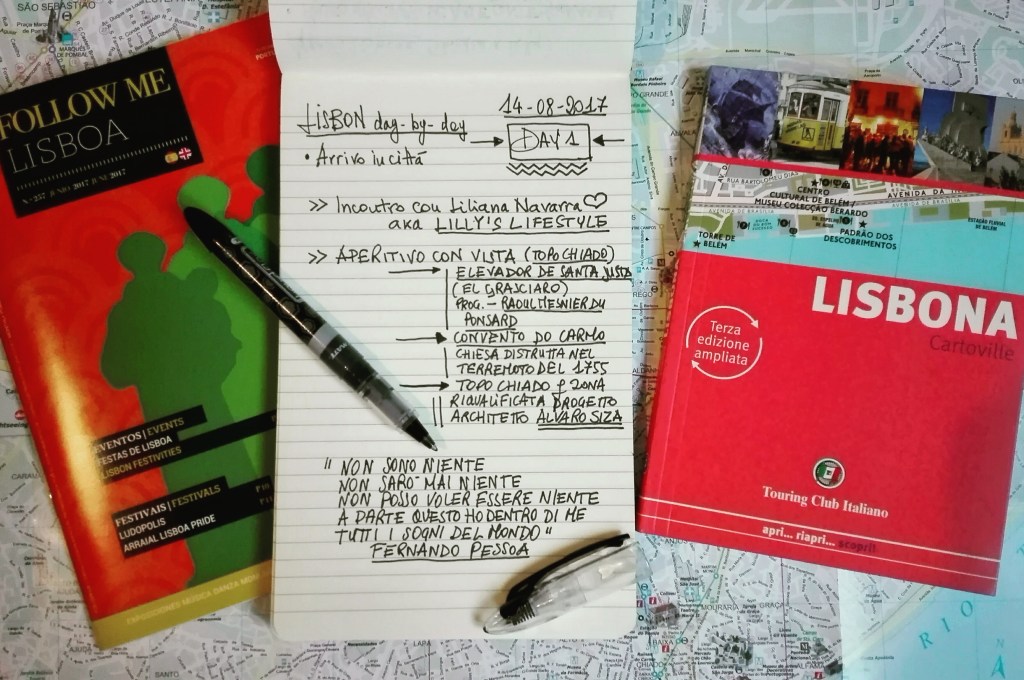 FOLLOW ME
LISBOA
Nº 257 JUNHO 2017 JUNE 2017
EVENTOS | EVENTS
FESTAS DE LISBOA
LISBON FESTIVITIES
FESTIVAIS | FESTIVALS
LUDOPOLIS
ARRAIAL LISBOA PRIDE
EXPOSIÇÕES MÚSICA DANZA
LISBON day-by-day
14-08-2017
DAY 1
• Arrivo in città
>> Incontro con Liliana Navarra ♡
aka LILLY'S LIFESTYLE
>> APERITIVO CON VISTA (TOPO CHIADO)
ELEVADOR DE SANTA JUSTA
(EL GRASCIARO)
PROG. - RAOUL MESNIER DU
PONSARD
CONVENTO DO CARMO
CHIESA DISTRUTTA NEL
TERREMOTO DEL 1755
TOPO CHIADO & ZONA
RIQUALIFICATA PROGETTO
ARCHITETTO ALVARO SIZA
" NON SONO NIENTE
NON SARO' MAI NIENTE
NON POSSO VOLER ESSERE NIENTE
A PARTE QUESTO HO DENTRO DI ME
TUTTI I SOGNI DEL MONDO "
FERNANDO PESSOA
RUA BARTOLOMEU DIAS
CENTRO
CULTURAL DE BELÉM /
MUSEU COLECÇÃO BERARDO
AVENIDA DA
AVENIDA DE BRASÍLIA
TORRE DE
BELÉM
PADRÃO DOS
DESCOBRIMENTOS
ESTAÇÃO FLUVIAL
DE BELÉM
LISBONA
Cartoville
Terza
edizione
ampliata
Touring Club Italiano
apri... riapri... scopri!
SÃO SEBASTIÃO
MARQUÊS
DE POMBAL
LAPA
MOURARIA
GRAÇA
BAIXA
ALFAMA
RIO